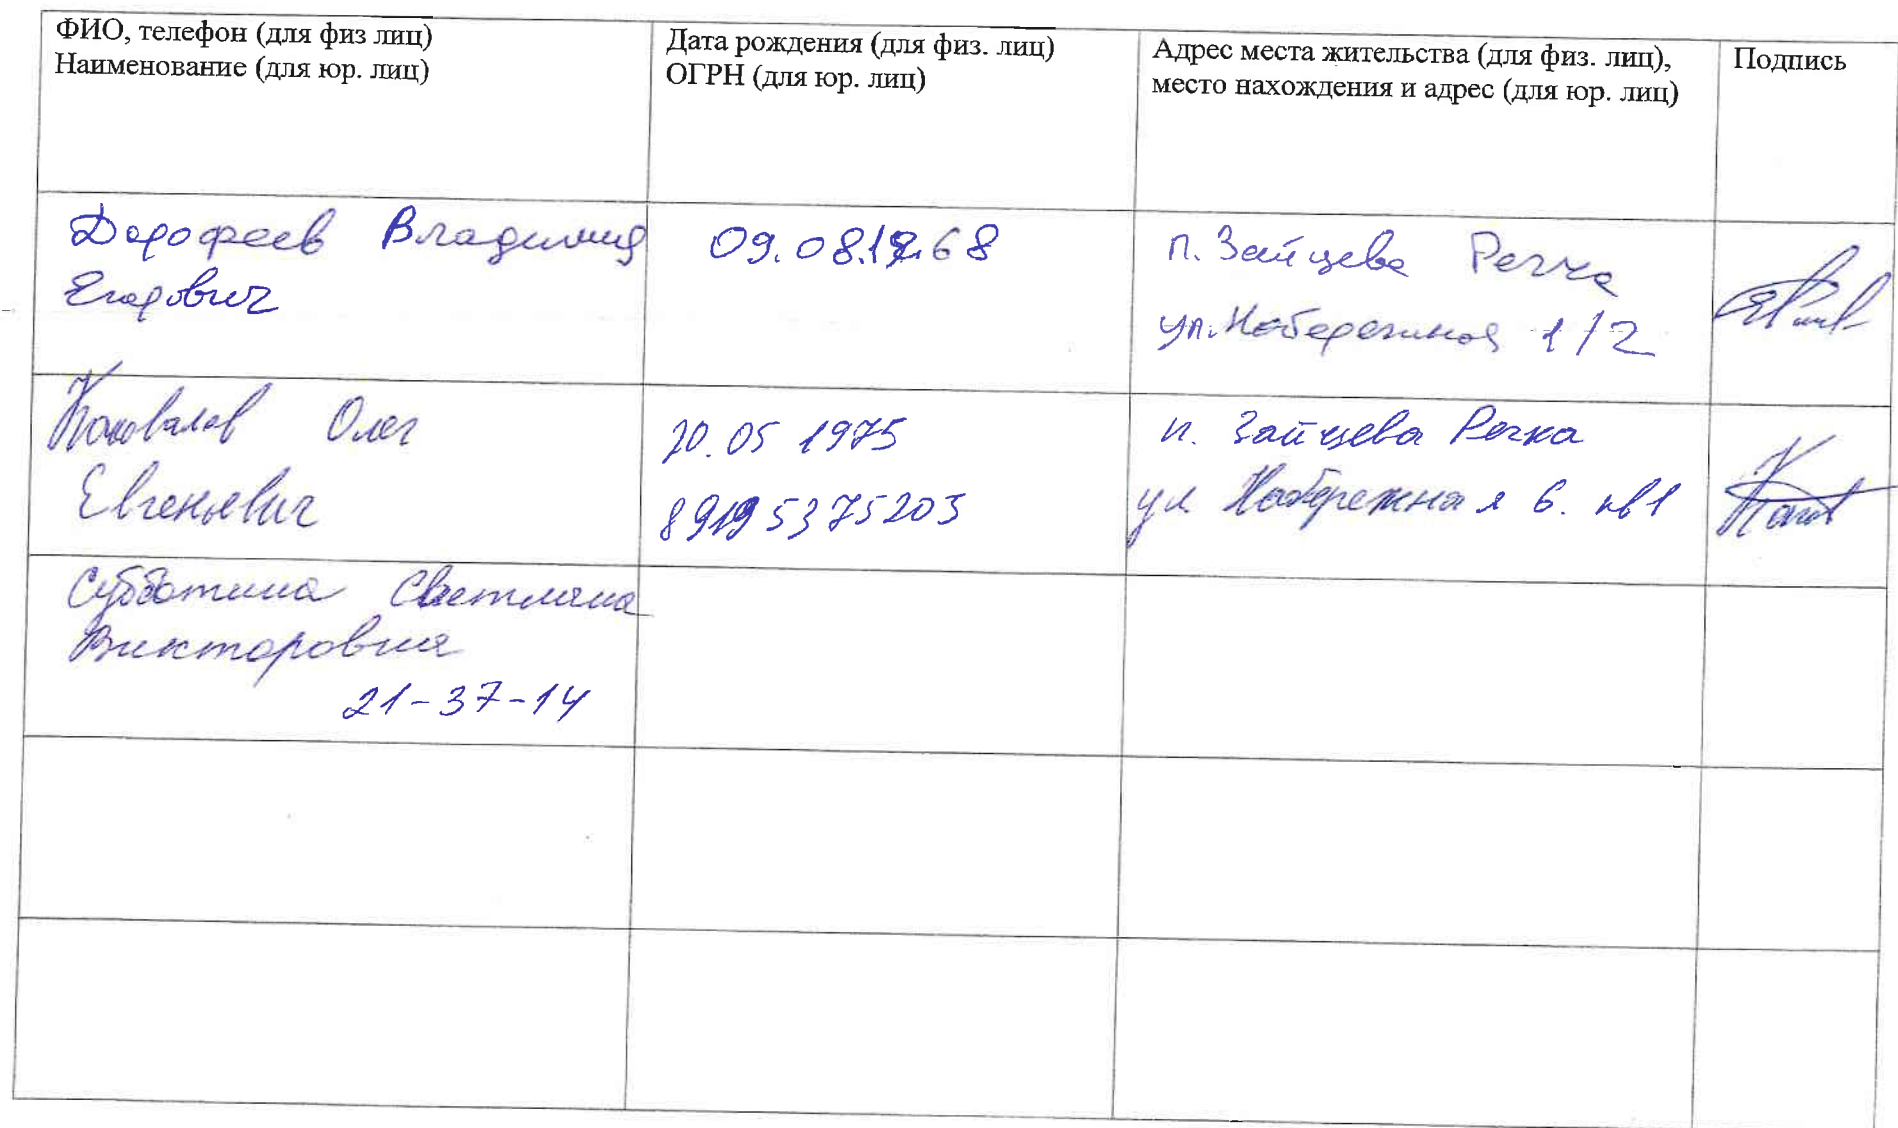 ФИО, телефон (для физ лиц)
Наименование (для юр. лиц)
Дата рождения (для физ. лиц)
ОГРН (для юр. лиц)
Адрес места жительства (для физ. лиц),
место нахождения и адрес (для юр. лиц)
Подпись
Дорофеев Владимир
Егорович
09.08.1968
п. Зайцева Речка
ул. Набережная 1/2
Коновалов Олег
Евгеньевич
20.05 1975
89195375203
п. Зайцева Речка
ул Набережная 6. кв1
Субботина Светлана
Викторовна
21-37-14